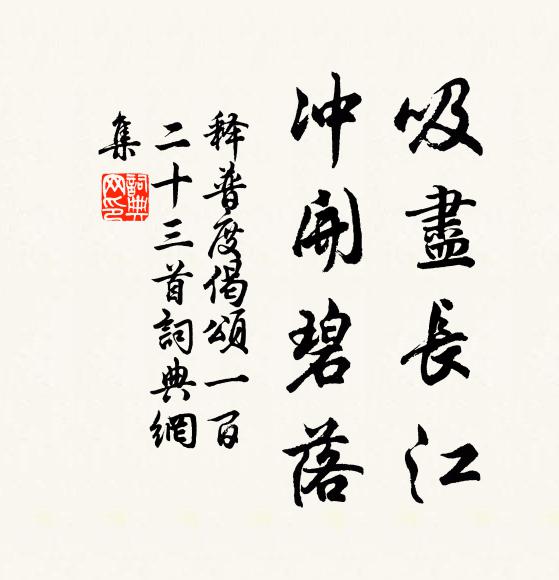 吸盡長江
冲開碧落
释普度偈頌一百
二十三首詞典網
集
詞典
网印